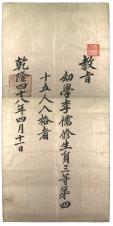 教旨
幼學李儒修生員三等第四
十五人入格者
乾隆四十八年四月十一日